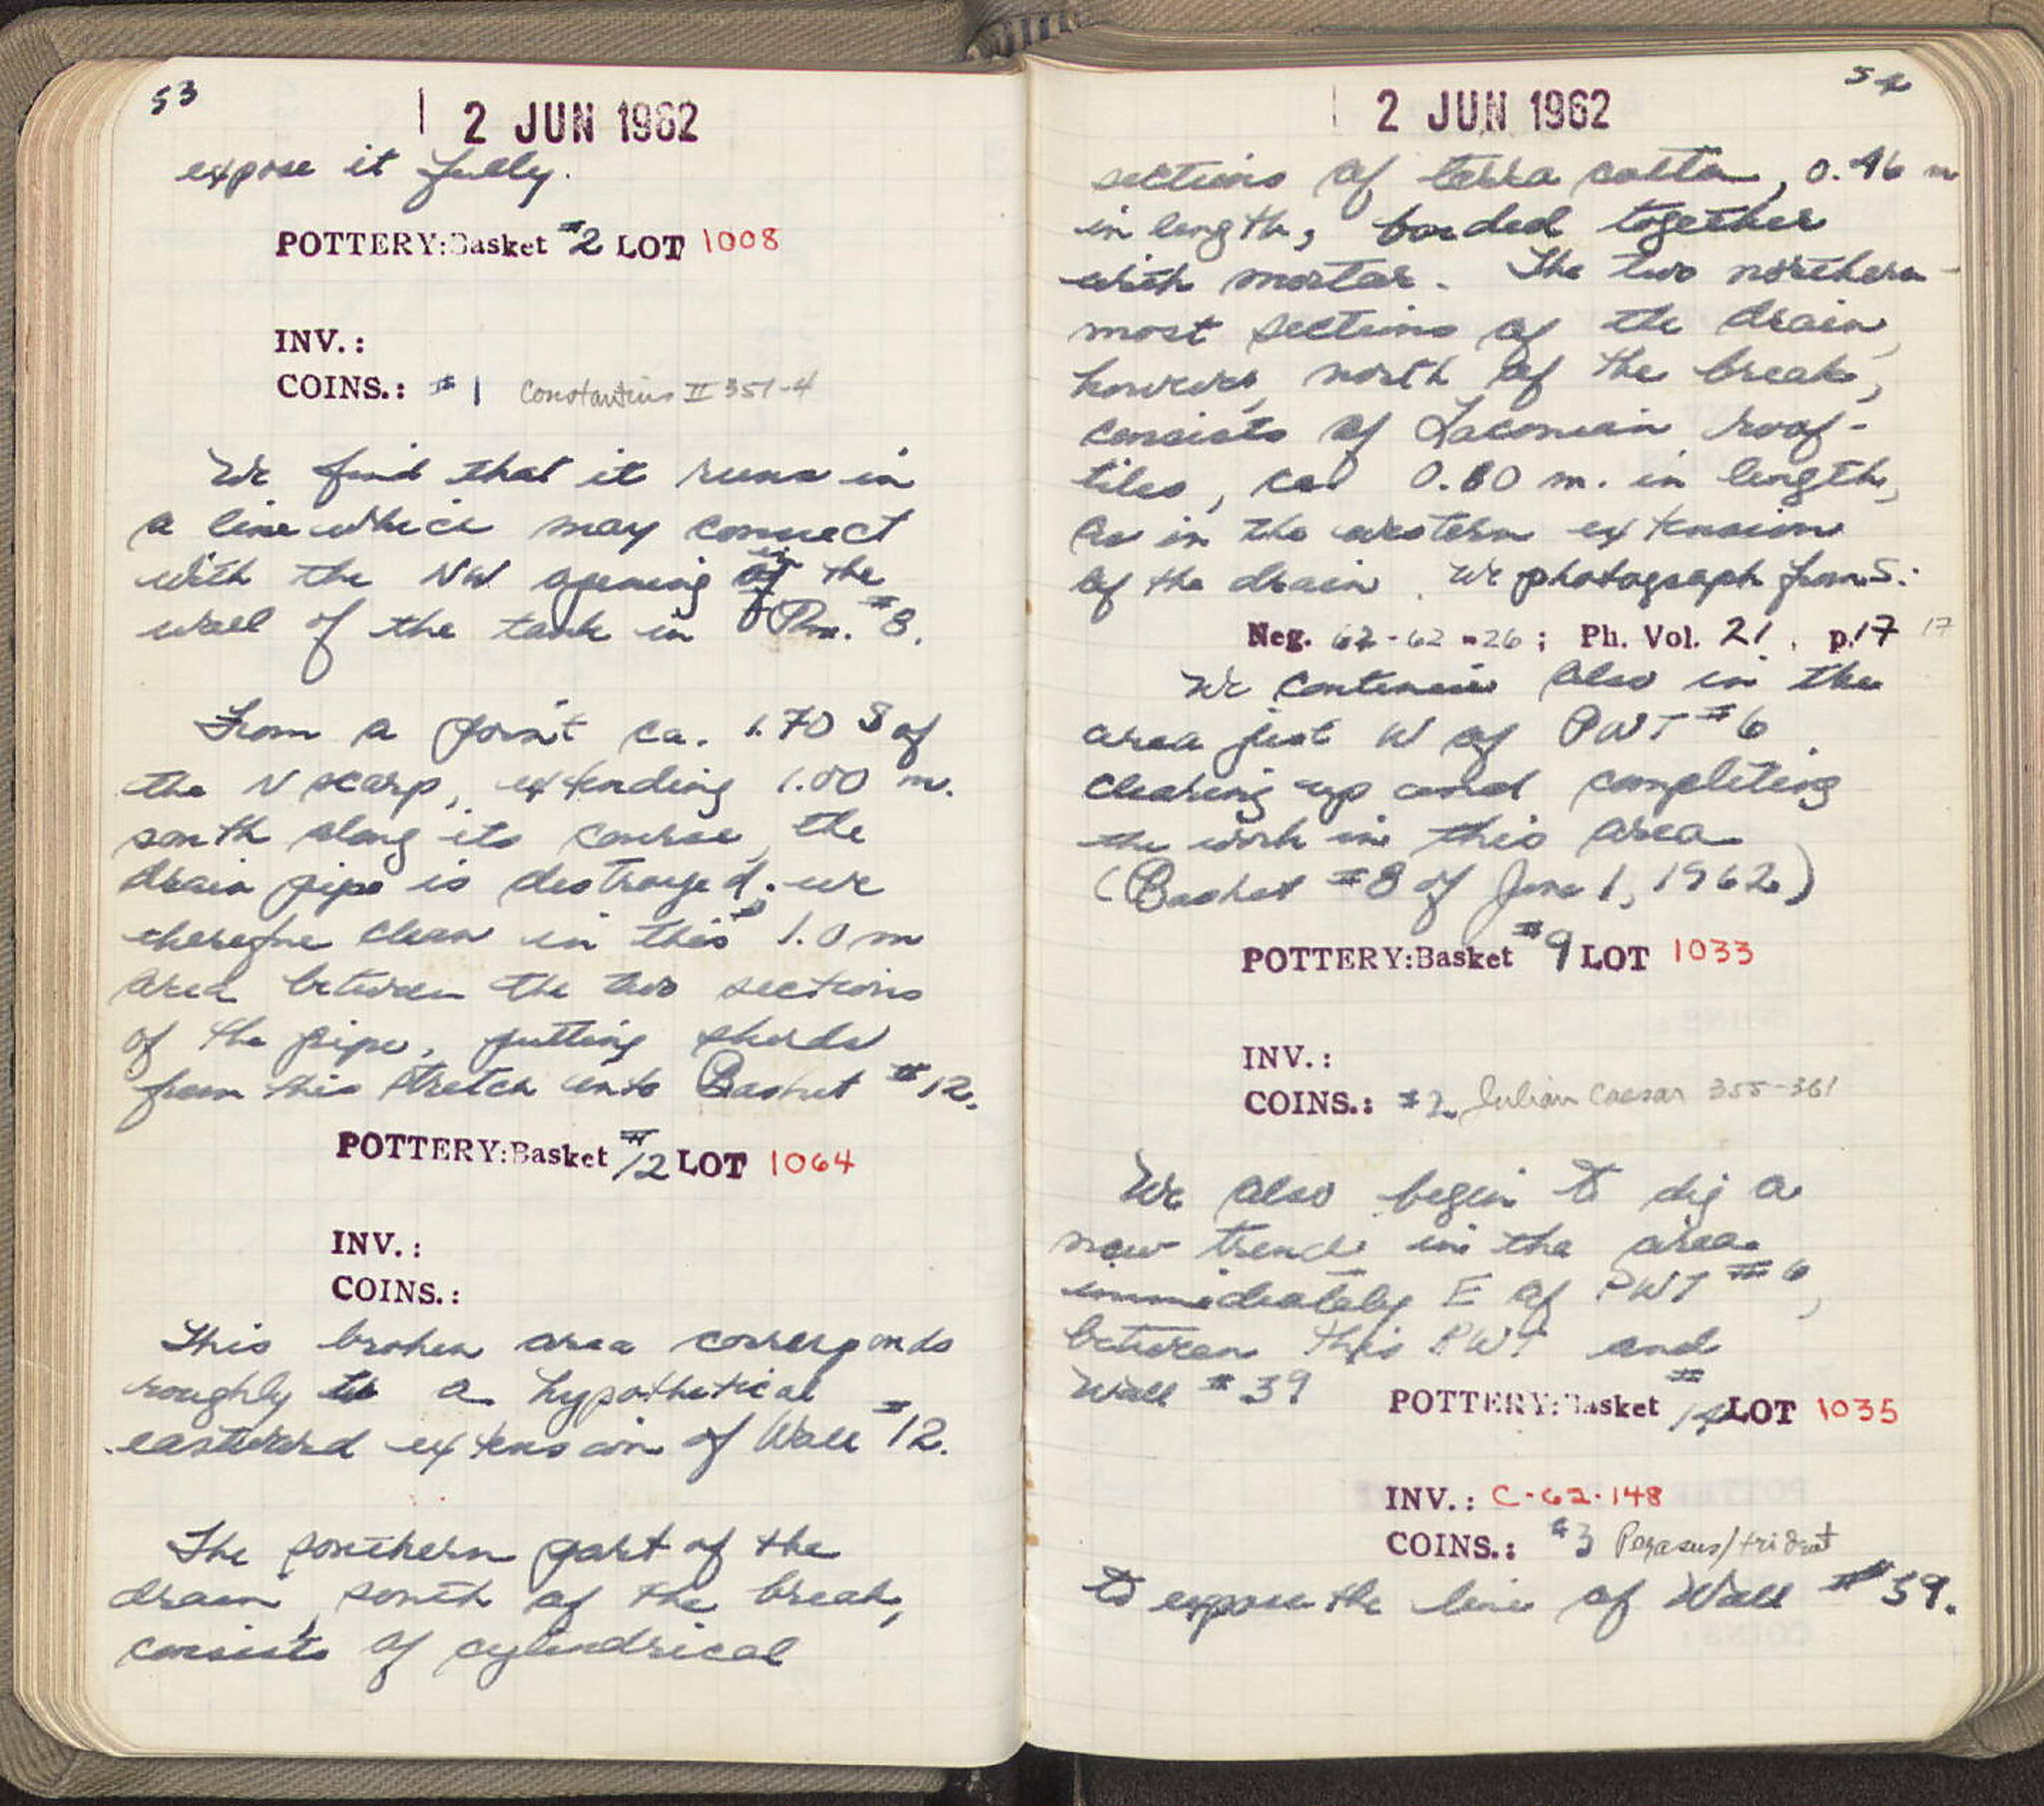 53
2 JUN 1962
expose it fully.
POTTERY: Basket #2 LOT 1008
INV.:
COINS.: #1 Constantius II 351-4
We find that it runs in
a line which may connect
with the NW opening in the
wall of the tank in Rm. #8.
From a point ca. 1.70 S of
the N scarp, extending 1.00 m.
south along its course, the
drain pipe is destroyed. We
therefore clean in this 1.0 m
area between the two sections
of the pipe, putting sherds
from this stretch into Basket #12.
POTTERY: Basket #12 LOT 1064
INV.:
COINS.:
This broken area corresponds
roughly to a hypothetical
eastward extension of Wall #12.
The southern part of the
drain, south of the break,
consists of cylindrical
54
2 JUN 1962
sections of terra cotta, 0.46 m
in length, bonded together
with mortar. The two northern-
most sections of the drain,
however, north of the break,
consists of Laconian roof-
tiles, ca. 0.80 m. in length,
as in the western extension
of the drain. We photograph from S.:
Neg. 62-62-26; Ph. Vol. 21, p.17 17
We continue also in the
area just W of PWT #6
cleaning up and completing
the work in this area
(Basket #8 of June 1, 1962)
POTTERY: Basket #9 LOT 1033
INV.:
COINS.: #2 Julian Caesar 355-361
We also begin to dig a
new trench in the area
immediately E of PWT #6,
between this PWT and
Wall #39
POTTERY: Basket #14 LOT 1035
INV.: C-62-148
COINS.: #3 Pegasus/trident
to expose the line of Wall #39.